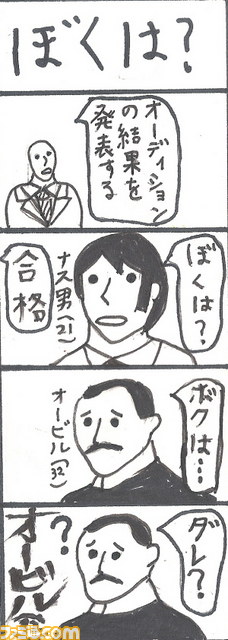 ぼくは?
オーディション
の結果を
発表する
ぼくは?
ナス男(21)
合格
ボクは…
オービル(32)
ダレ?
?
オービル
ファミ通.com